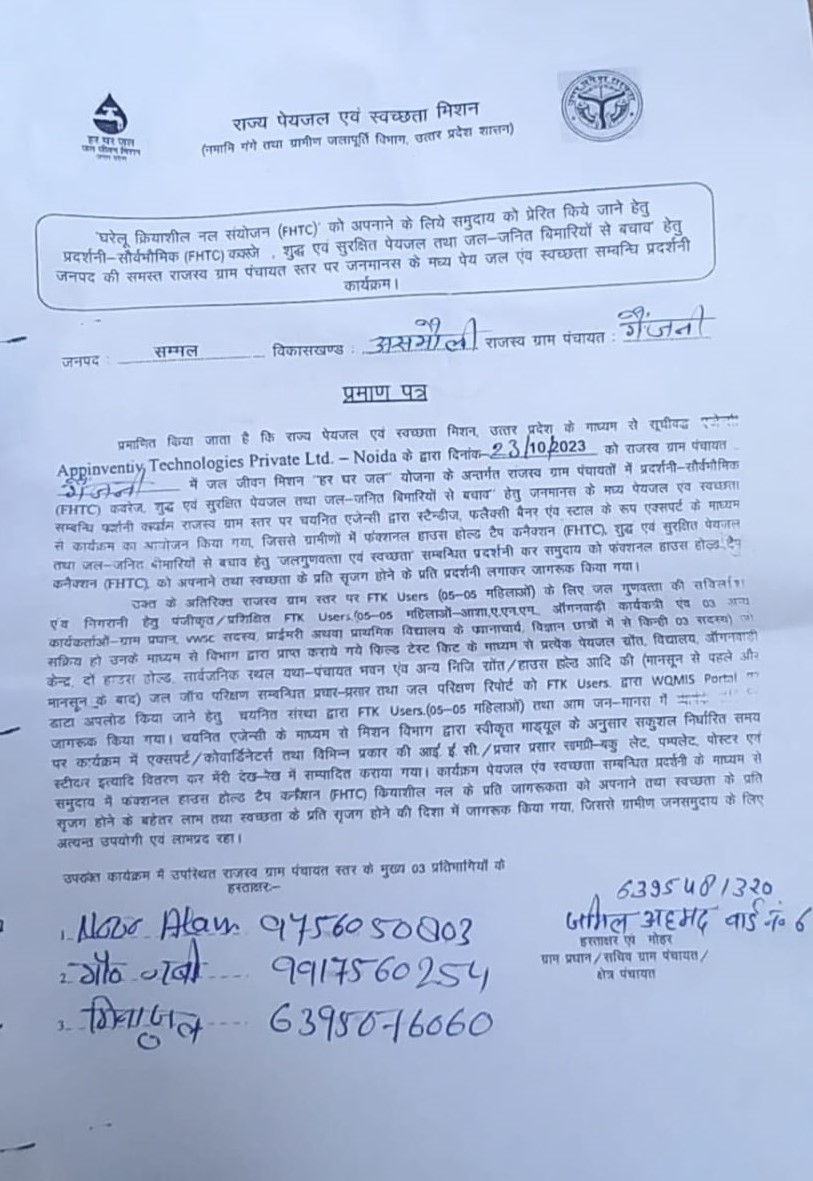 हर घर जल
जल जीवन मिशन
राज्य पेयजल एवं स्वच्छता मिशन
(नमामि गंगे तथा ग्रामीण जलापूर्ति विभाग, उत्तर प्रदेश शासन)
'घरेलू क्रियाशील नल संयोजन (FHTC)' को अपनाने के लिये समुदाय को प्रेरित किये जाने हेतु
प्रदर्शनी–सौर्वभौमिक (FHTC) कवरेज , शुद्ध एवं सुरक्षित पेयजल तथा जल–जनित बिमारियों से बचाव' हेतु
जनपद की समस्त राजस्व ग्राम पंचायत स्तर पर जनमानस के मध्य पेय जल एंव स्वच्छता सम्बन्धि प्रदर्शनी
कार्यक्रम।
जनपद : सम्भल विकासखण्ड : असमौली राजस्व ग्राम पंचायत : गैंजनी
प्रमाण पत्र
प्रमाणित किया जाता है कि राज्य पेयजल एवं स्वच्छता मिशन, उत्तर प्रदेश के माध्यम से सूचीवद्ध
Appinventiv Technologies Private Ltd. – Noida के द्वारा दिनांक–23/10/2023 को राजस्व ग्राम पंचायत
गैंजनी में जल जीवन मिशन "हर घर जल" योजना के अन्तर्गत राजस्व ग्राम पंचायतों में प्रदर्शनी–सौर्वभौमिक
(FHTC) कवरेज, शुद्ध एवं सुरक्षित पेयजल तथा जल–जनित बिमारियों से बचाव" हेतु जनमानस के मध्य पेयजल एंव स्वच्छता
सम्बन्धि प्रर्दशनी राजस्व ग्राम स्तर पर चयनित एजेन्सी द्वारा स्टैन्डीज, फलैक्सी बैनर एंव स्टाल के रूप एक्सपर्ट के माध्यम
से कार्यक्रम का आयोजन किया गया, जिससे ग्रामीणों में फंक्शनल हाउस होल्ड टैप कनैक्शन (FHTC), शुद्ध एंव सुरक्षित पेयजल
तथा जल–जनित बीमारियों से बचाव हेतु 'जलगुणवत्ता एवं स्वच्छता' सम्बन्धित प्रदर्शनी कर समुदाय को फंक्शनल हाउस होल्ड टैप
कनैक्शन (FHTC), को अपनाने तथा स्वच्छता के प्रति सृजग होने के प्रति प्रदर्शनी लगाकर जागरूक किया गया।
उक्त के अतिरिक्त राजस्व ग्राम स्तर पर FTK Users (05–05 महिलाओं) के लिए जल गुणवत्ता की
एंव निगरानी हेतु पंजीकृत/प्रशिक्षित FTK Users.(05–05 महिलाओं–आशा,ए.एन.एम., ऑगनवाड़ी कार्यकत्री एंव 03 अन्य
कार्यकर्ताओं–ग्राम प्रधान, vwsc सदस्य, प्राईमरी अथवा प्राथमिक विद्यालय के प्रधानाचार्य, विज्ञान छात्रों में से किन्ही 03 सदस्य) को
सक्रिय हो उनके माध्यम से विभाग द्वारा प्राप्त कराये गये फिल्ड टेस्ट किट के माध्यम से प्रत्येक पेयजल स्रोत, विद्यालय, ऑगनवाड़ी
केन्द्र, दों हाउस होल्ड, सार्वजनिक स्थल यथा–पंचायत भवन एंव अन्य निजि स्रोत/हाउस होल्ड आदि की (मानसून से पहले और
मानसून के बाद) जल जाँच परिक्षण सम्बन्धित प्रचार–प्रसार तथा जल परिक्षण रिपोर्ट को FTK Users. द्वारा WQMIS Portal
डाटा अपलोड किया जाने हेतु चयनित संस्था द्वारा FTK Users.(05–05 महिलाओं) तथा आम जन–मानस में
जागरूक किया गया। चयनित एजेन्सी के माध्यम से मिशन विभाग द्वारा स्वीकृत माड्यूल के अनुसार सकुशल निर्धारित समय
पर कार्यक्रम में एक्सपर्ट/कोवार्डिनेटर्स तथा विभिन्न प्रकार की आई.ई.सी./प्रचार प्रसार सामग्री–बकु लेट, पम्पलेट, पोस्टर एवं
स्टीकर इत्यादि वितरण कर मेरी देख–रेख में सम्पादित कराया गया। कार्यक्रम पेयजल एंव स्वच्छता सम्बन्धित प्रदर्शनी के माध्यम से
समुदाय में फंक्शनल हाउस होल्ड टैप कनैक्शन (FHTC) कियाशील नल के प्रति जागरूकता को अपनाने तथा स्वच्छता के प्रति
सृजग होने के बहेतर लाभ तथा स्वच्छता के प्रति सृजग होने की दिशा में जागरूक किया गया, जिससे ग्रामीण जनसमुदाय के लिए
अत्यन्त उपयोगी एवं लाभप्रद रहा।
उपरोक्त कार्यक्रम में उपस्थित राजस्व ग्राम पंचायत स्तर के मुख्य 03 प्रतिभागियों के
हस्ताक्षरः–
6395481320
जमिल अहमद वार्ड नं० 6
हस्ताक्षर एवं मोहर
ग्राम प्रधान/सचिव ग्राम पंचायत/
क्षेत्र पंचायत
1. Noor Alam 9756050803
2. नबी 9917560254
3. 6395076060